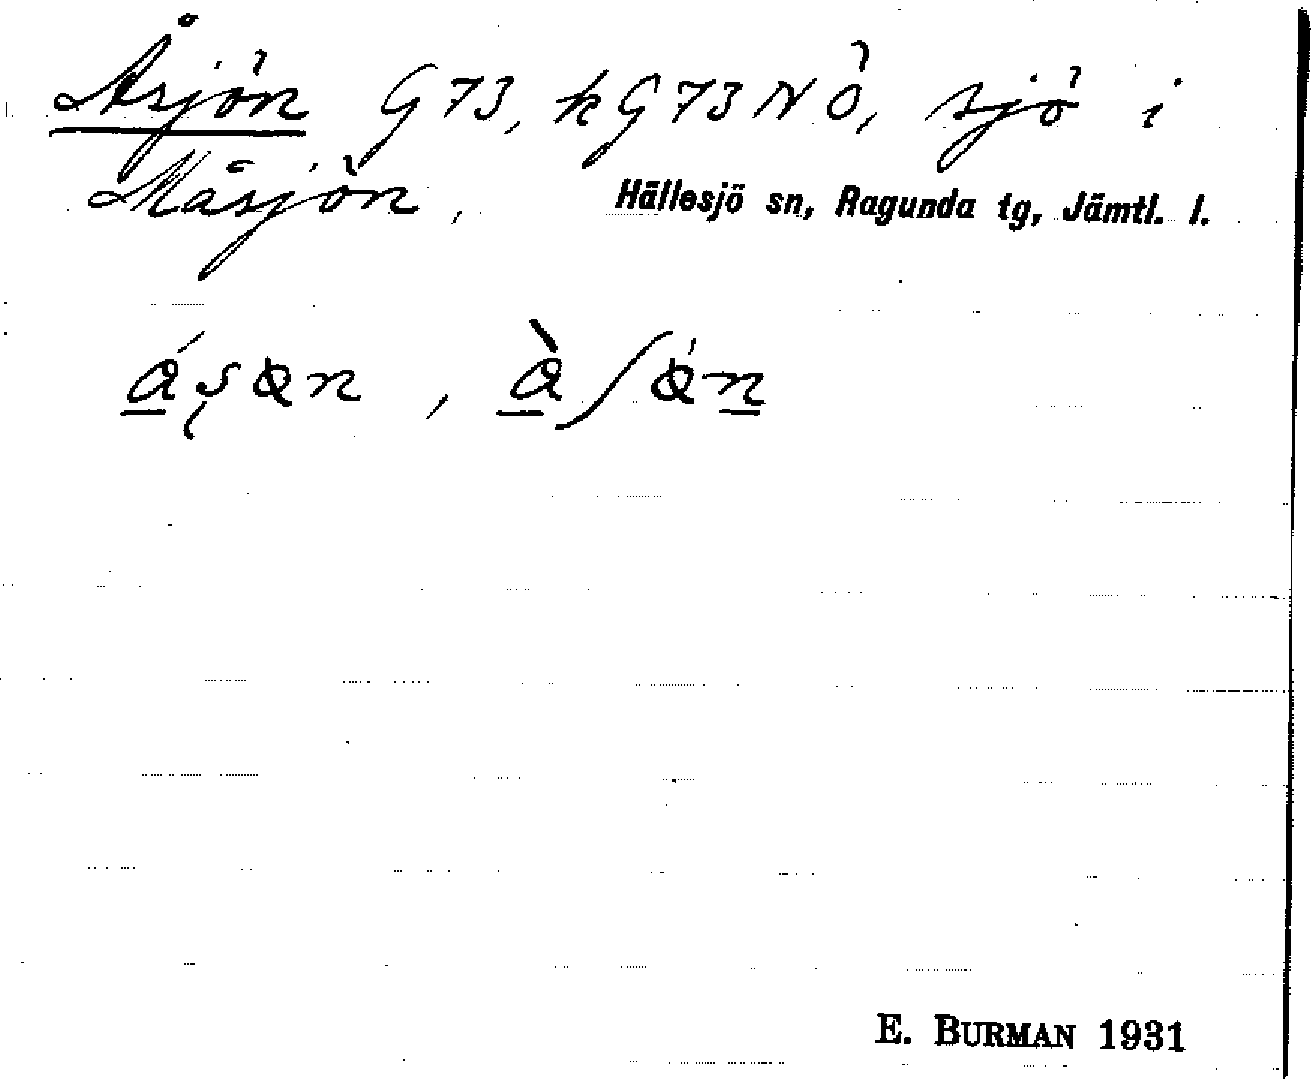 Åsjön G 73, k G 73 N Ö, sjö i
Måsjön, Hällesjö sn, Ragunda tg, Jämtl. l.
E. BURMAN 1931